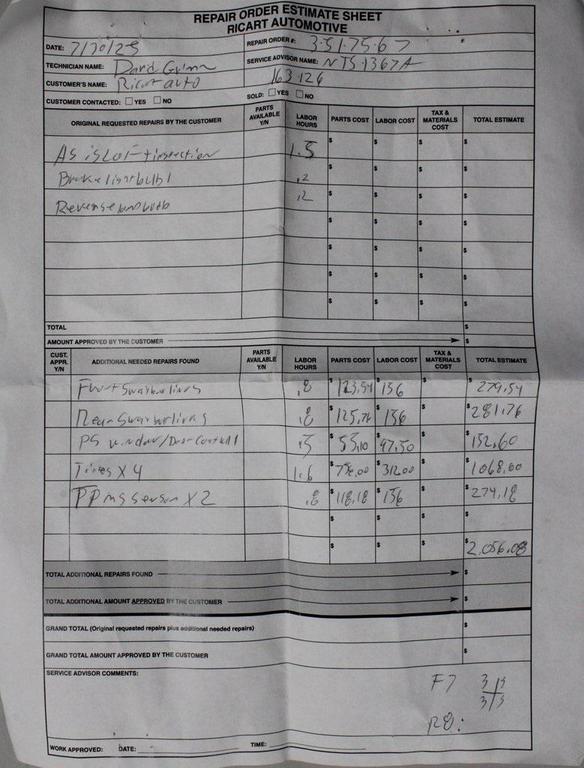 REPAIR ORDER ESTIMATE SHEET
RICART AUTOMOTIVE
DATE: 7/20/23 REPAIR ORDER #: 3-51-75-67
TECHNICIAN NAME: David SERVICE ADVISOR NAME: NTS1367A
CUSTOMER'S NAME: Ricart auto 163,126
CUSTOMER CONTACTED: ☐ YES ☐ NO SOLD: ☐ YES ☐ NO
ORIGINAL REQUESTED REPAIRS BY THE CUSTOMER PARTS AVAILABLE Y/N LABOR HOURS PARTS COST LABOR COST TAX & MATERIALS COST TOTAL ESTIMATE
AS is LOF + inspection 1.5 $ $ $ $
.2 $ $ $ $
.2 $ $ $ $
$ $ $ $
$ $ $ $
$ $ $ $
$ $ $ $
TOTAL $
AMOUNT APPROVED BY THE CUSTOMER $
CUST. APPR. Y/N ADDITIONAL NEEDED REPAIRS FOUND PARTS AVAILABLE Y/N LABOR HOURS PARTS COST LABOR COST TAX & MATERIALS COST TOTAL ESTIMATE
Front swaybar links .8 $ 123.54 $ 156 $ $ 279.54
Rear swaybar links .8 $ 125.76 $ 156 $ $ 281.76
PS window/Door Control .5 $ 55.10 $ 97.50 $ $ 152.60
Tires X 4 1.6 $ 756.00 $ 312.00 $ $ 1068.00
TPMS sensor X 2 .8 $ 118.18 $ 156 $ $ 274.18
$ $ $ $
$ $ $ $ 2,056.08
TOTAL ADDITIONAL REPAIRS FOUND $
TOTAL ADDITIONAL AMOUNT APPROVED BY THE CUSTOMER $
GRAND TOTAL (Original requested repairs plus additional needed repairs) $
GRAND TOTAL AMOUNT APPROVED BY THE CUSTOMER $
SERVICE ADVISOR COMMENTS:
F7 3 3
3 3
R8:
WORK APPROVED: DATE: TIME: